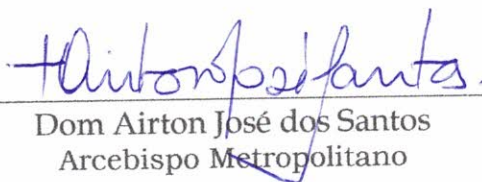 +Airton José Santos.
Dom Airton José dos Santos
Arcebispo Metropolitano